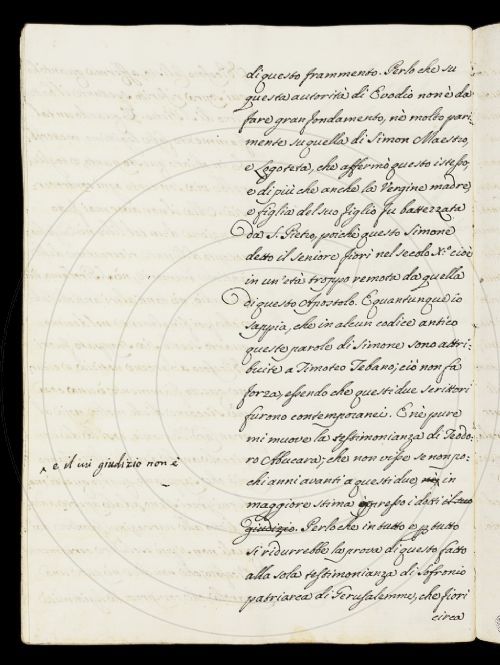 di questo frammento. Perlo che su
questa autorità di Evodio non è da
fare gran fondamento, nè molto pari-
mente su quella di Simon Maestro,
e Logoteta, che affermò questo istesso,
e di più che anche la Vergine madre,
e figlia del suo figlio fu battezzata
da S. Pietro, poichè questo Simone
detto il seniore fiorì nel secolo X.º cioè
in un'età troppo remota da quella
di questo Apostolo. E quantunque io
sappia, che in alcun codice antico
queste parole di Simone sono attri-
buite a Timoteo Tebano; ciò non fa
forza, essendo che questi due scrittori
furono contemporanei. E nè pure
mi muove la testimonianza di Teodo-
ro Abucara; che non visse se non po-
chi anni avanti a questi due, in
maggiore stima appresso i dotti il suo
giudizio. Perlo che in tutto e p tutto
si ridurrebbe la prova di questo fatto
alla sola testimonianza di Sofronio
patriarca di Gerusalemme, che fiorì
circa
e il cui giudizio non è